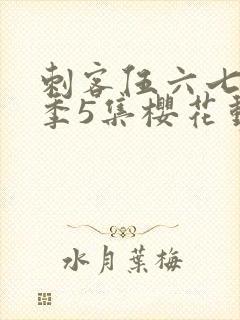 刺客伍六七
季5集櫻花
水月葉梅